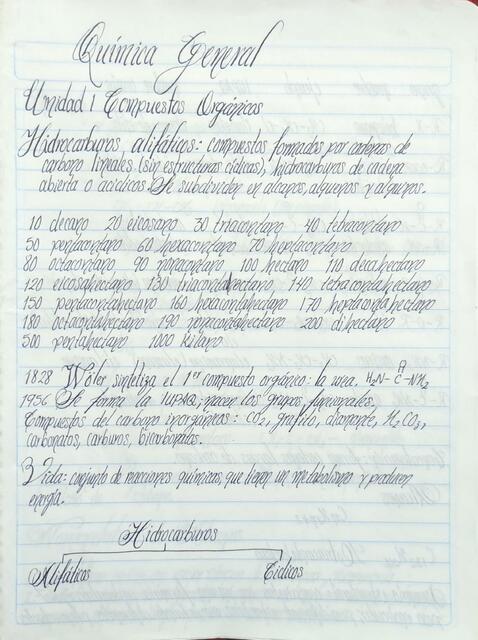 Química General
Unidad 1 Compuestos Orgánicos
Hidrocarburos, alifáticos: compuestos formados por cadenas de
carbono lineales (sin estructuras cíclicas), hidrocarburos de cadena
abierta o acíclicos. Se subdividen en alcanos, alquenos y alquinos.
10 decano 20 eicosano 30 triacontano 40 tetracontano
50 pentacontano 60 hexacontano 70 heptacontano
80 octacontano 90 nonacontano 100 hectano 110 decahectano
120 eicosahectano 130 triacontahectano, 140 tetracontahectano
150 pentacontahectano 160 hexacontahectano 170 heptacontahectano
180 octacontahectano 190 nonacontahectano 200 dihectano
500 pentahectano 1000 kilano
O
1828 Wöler sintetiza el 1er compuesto orgánico: la urea. H2N-C-NH2
1956 Se forma la IUPAQ; nacen los grupos funcionales.
Compuestos del carbono inorgánicos: CO2, grafito, diamante, H2CO3,
carbonatos, carburos, bicarbonatos.
Vida: conjunto de reacciones químicas, que tienen un metabolismo y producen
energía.
Hidrocarburos
Alifáticos Cíclicos